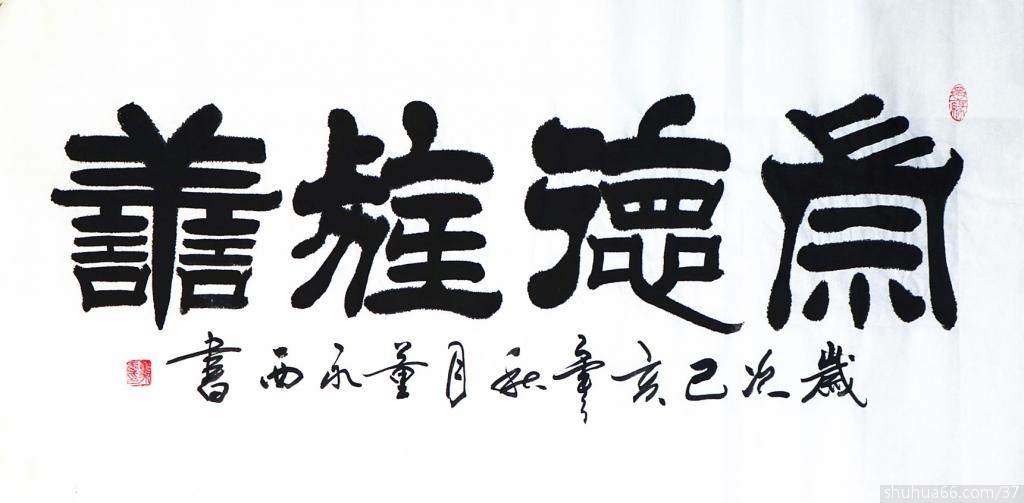 為德善
歲次己亥年秋月董永西書
shuhua66.com/37